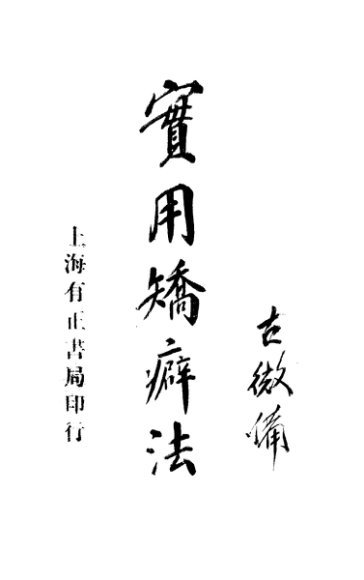 古微傭
實用矯癖法
上海有正書局印行